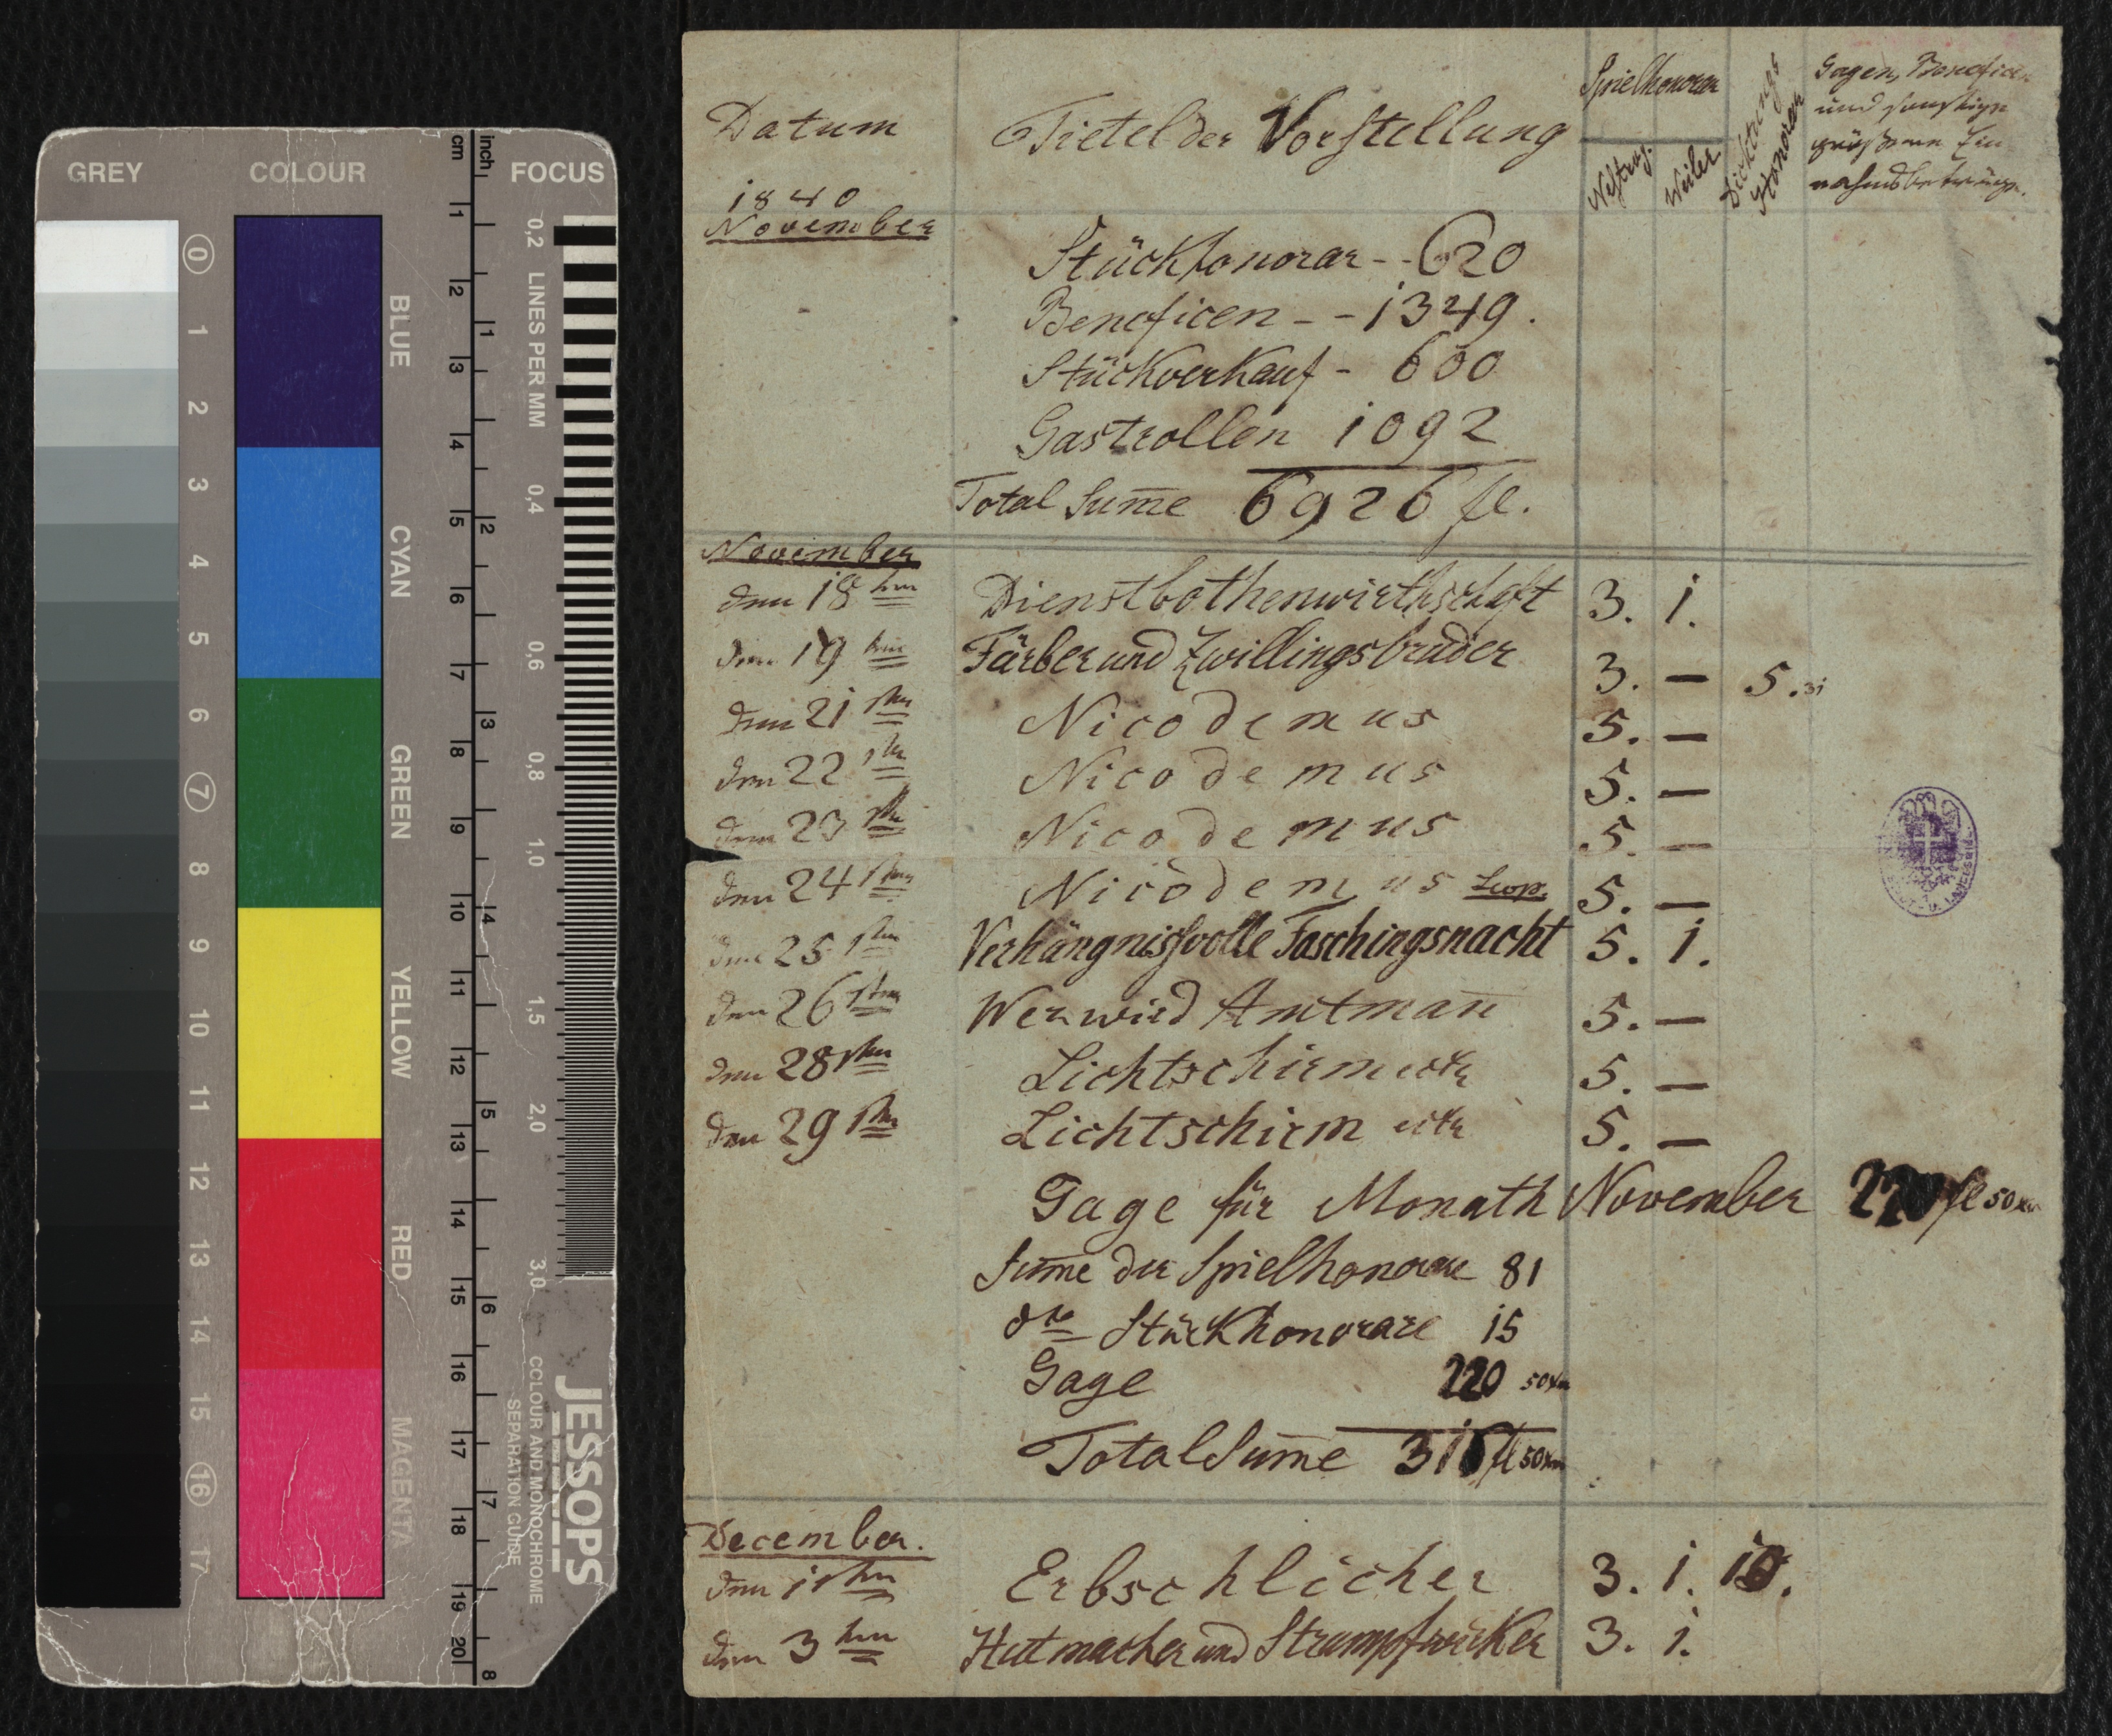 GREY COLOUR FOCUS
cm inch
0 1 2 3 4 5 6 7 8 9 10 11 12 13 14 15 16 17
BLUE
CYAN
GREEN
YELLOW
RED
MAGENTA
1 2 3 4 5 6 7 8 9 10 11 12 13 14 15 16 17 18 19 20
1 2 3 4 5 6 7 8
0,2 LINES PER MM 0,4 0,6 0,8 1,0 1,5 2,0 3,0
JESSOPS
COLOUR AND MONOCHROME
SEPARATION GUIDE
Datum Tietel der Vorstellung Spielhonorar Nestroy. Weiler Dichtungs Honorar Gagen, Beneficen
und sonstige
größere Ein-
nahmsbeträge.
1840
November
Stückhonorar - - 620
Beneficen - - 1349.
Stückverkauf - 600
Gastrollen 1092
Total Sum̅e 6926 fl.
November
den 18ten Dienstbothenwirthschaft 3. 1.
den 19ten Färber und Zwillingsbruder 3. — 5.31
den 21sten Nicodemus 5. —
den 22sten Nicodemus 5. —
den 23sten Nicodemus 5. —
den 24sten Nicodemus 5. —
den 25sten Verhängnißvolle Faschingsnacht 5. 1.
den 26sten Wer wird Amtman̅ 5. —
den 28sten Lichtschirm etc 5. —
den 29sten Lichtschirm etc 5. —
Gage für Monath November 220 fl 50xr
Sum̅e der Spielhonorare 81
dto Stückhonorare 15
Gage 220 50xr
Total Sum̅e 316 fl 50xr
December.
den 1sten Erbschlicher 3. 1. 10.
den 3ten Hutmacher und Strumpfwirker 3. 1.